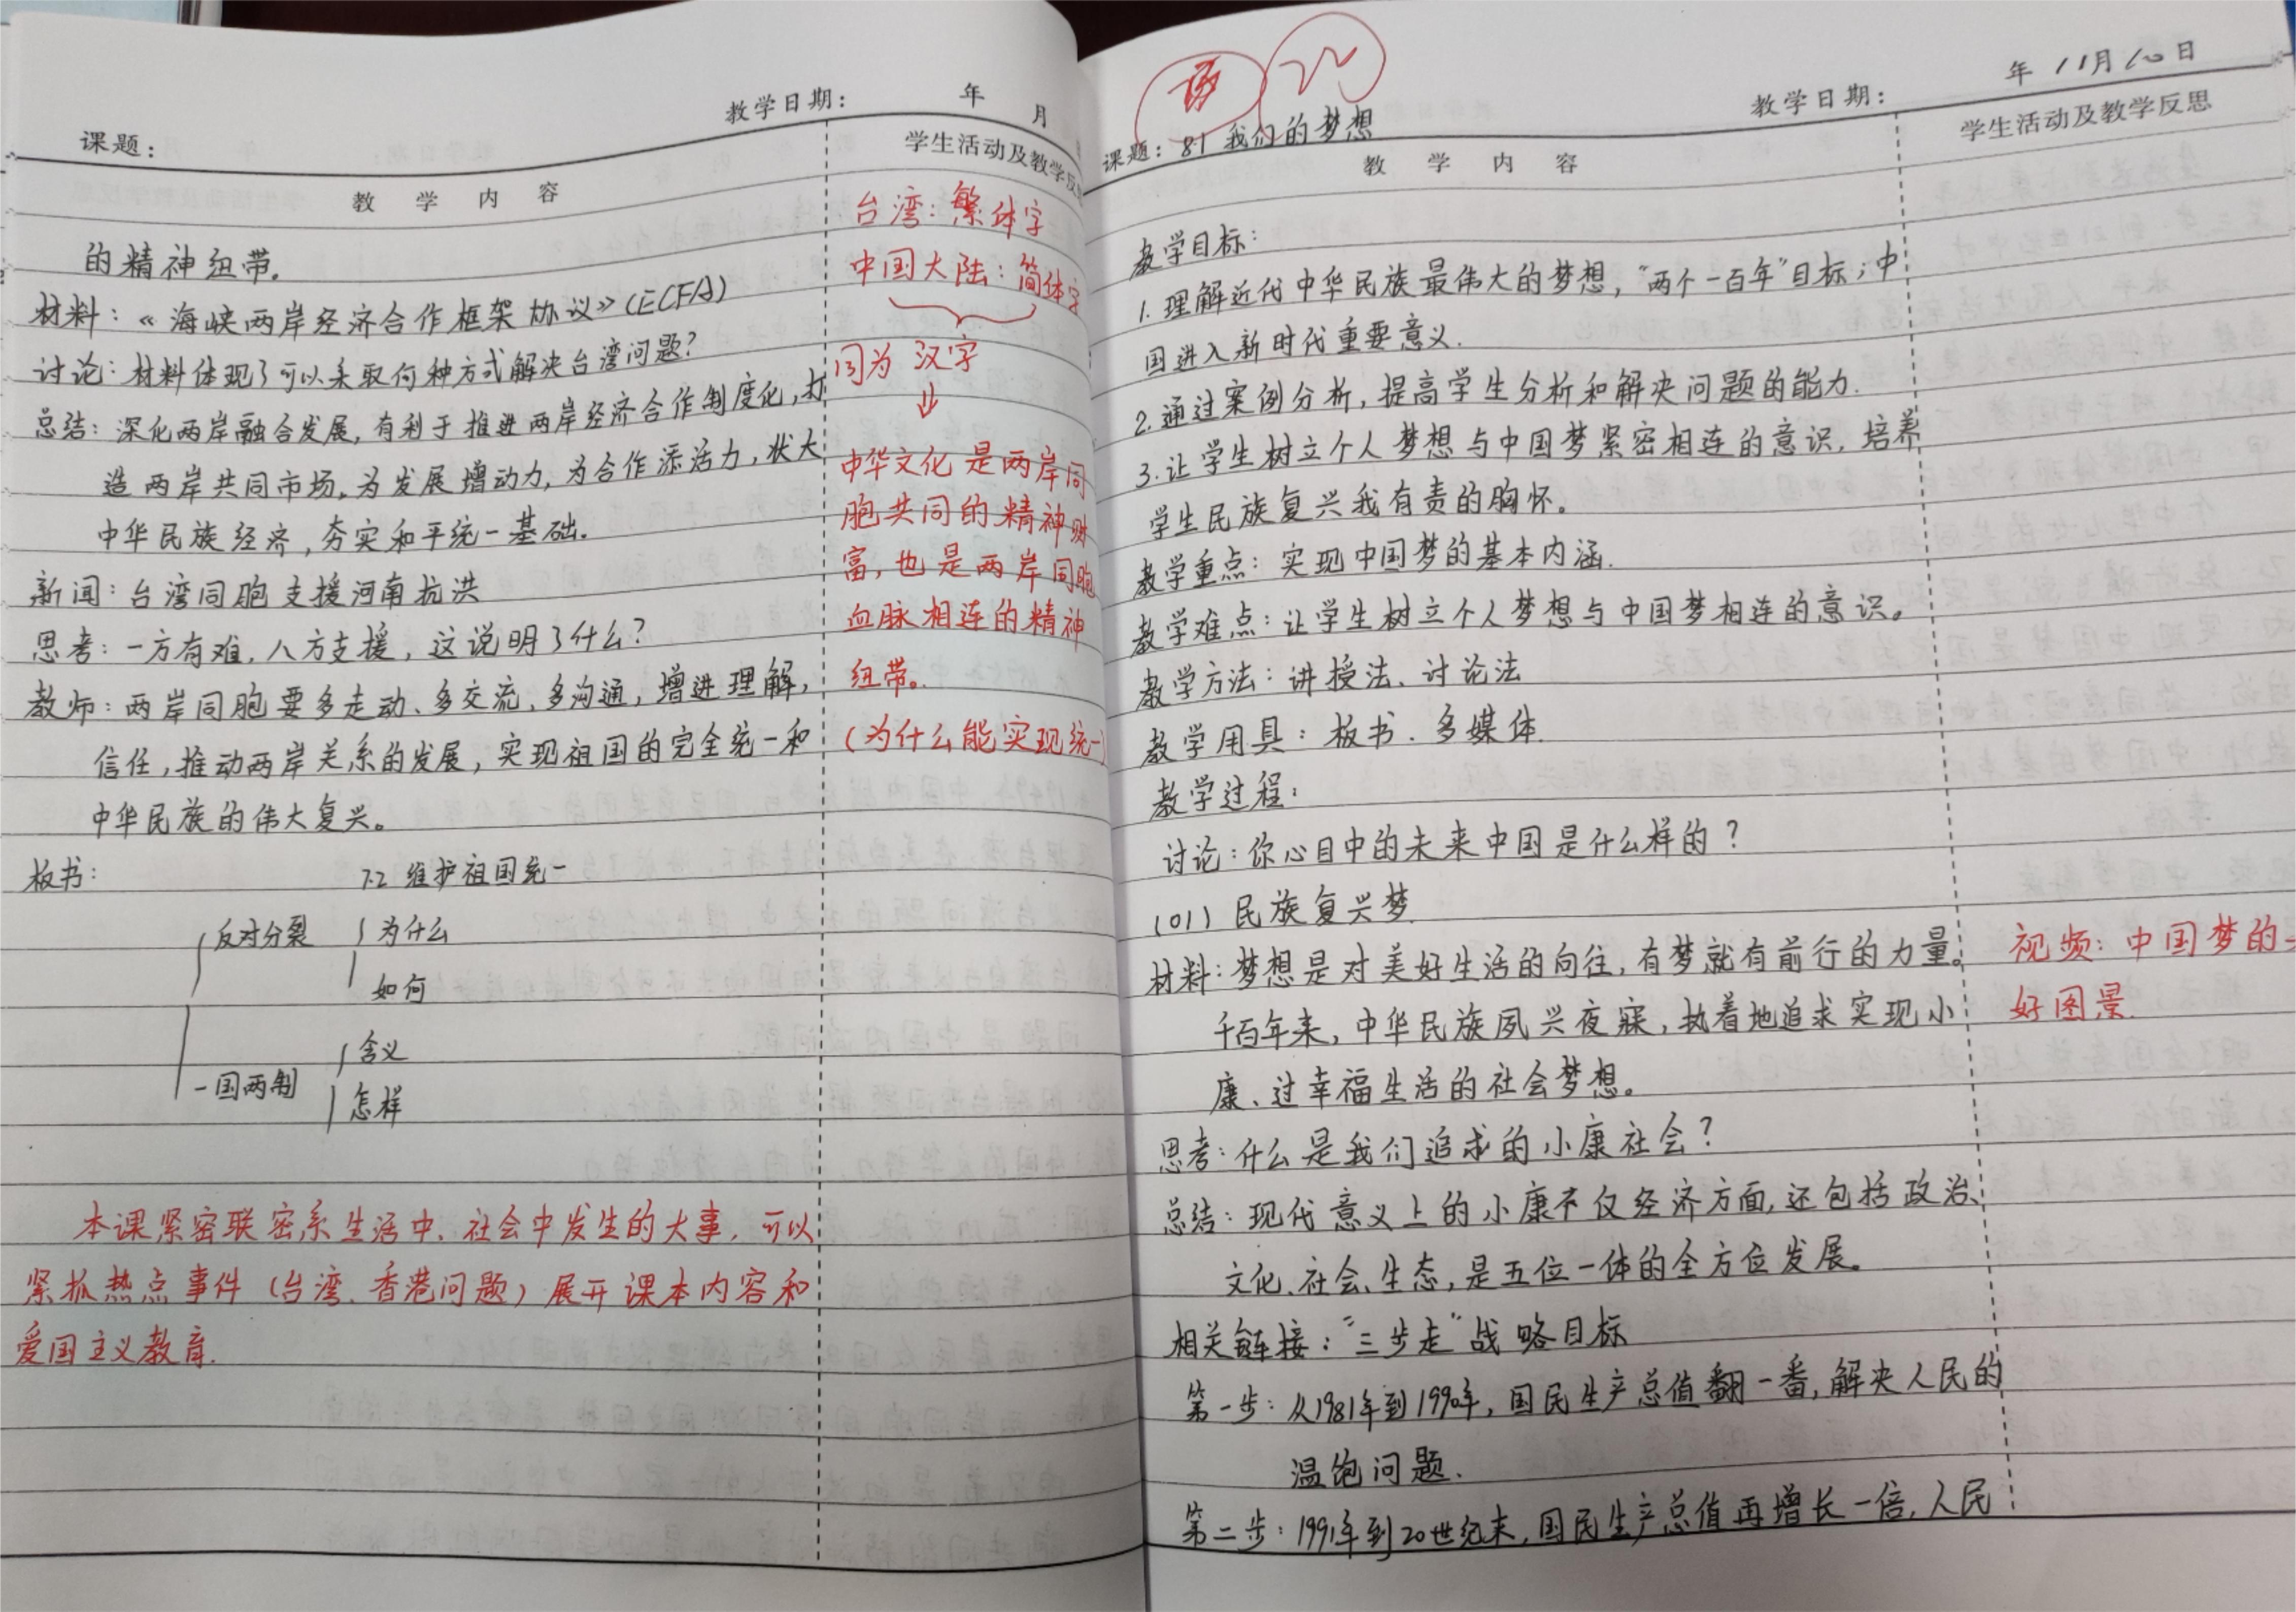 教学日期： 年 月
课题：
教 学 内 容
学生活动及教学反
的精神纽带。
材料：《海峡两岸经济合作框架协议》(ECFA)
讨论：材料体现了可以采取何种方式解决台湾问题？
总结：深化两岸融合发展，有利于推进两岸经济合作制度化，打
造两岸共同市场，为发展增动力，为合作添活力，状大
中华民族经济，夯实和平统一基础.
新闻：台湾同胞支援河南抗洪
思考：一方有难，八方支援，这说明了什么？
教师：两岸同胞要多走动、多交流、多沟通，增进理解，
信任，推动两岸关系的发展，实现祖国的完全统一和
中华民族的伟大复兴。
板书：
7.2 维护祖国统一
反对分裂
为什么
如何
一国两制
含义
怎样
本课紧密联密系生活中、社会中发生的大事，可以
紧抓热点事件（台湾、香港问题）展开课本内容和
爱国主义教育.
台湾：繁体字
中国大陆：简体字
同为 汉字
⇓
中华文化是两岸同
胞共同的精神财
富，也是两岸同胞
血脉相连的精神
纽带。
（为什么能实现统一）
教学日期： 年 11月10日
课题：8.1 我们的梦想
教 学 内 容
学生活动及教学反思
教学目标：
1.理解近代中华民族最伟大的梦想，“两个一百年”目标；中
国进入新时代重要意义.
2.通过案例分析，提高学生分析和解决问题的能力.
3.让学生树立个人梦想与中国梦紧密相连的意识，培养
学生民族复兴我有责的胸怀。
教学重点：实现中国梦的基本内涵.
教学难点：让学生树立个人梦想与中国梦相连的意识。
教学方法：讲授法、讨论法
教学用具：板书.多媒体.
教学过程：
讨论：你心目中的未来中国是什么样的？
(01) 民族复兴梦.
材料：梦想是对美好生活的向往，有梦就有前行的力量。
千百年来，中华民族夙兴夜寐，执着地追求实现小
康、过幸福生活的社会梦想。
思考：什么是我们追求的小康社会？
总结：现代意义上的小康不仅经济方面，还包括政治、
文化、社会、生态，是五位一体的全方位发展。
相关链接：“三步走”战略目标
第一步：从1981年到1990年，国民生产总值翻一番，解决人民的
温饱问题.
第二步：1991年到20世纪末，国民生产总值再增长一倍，人民
视频：中国梦的
好图景.